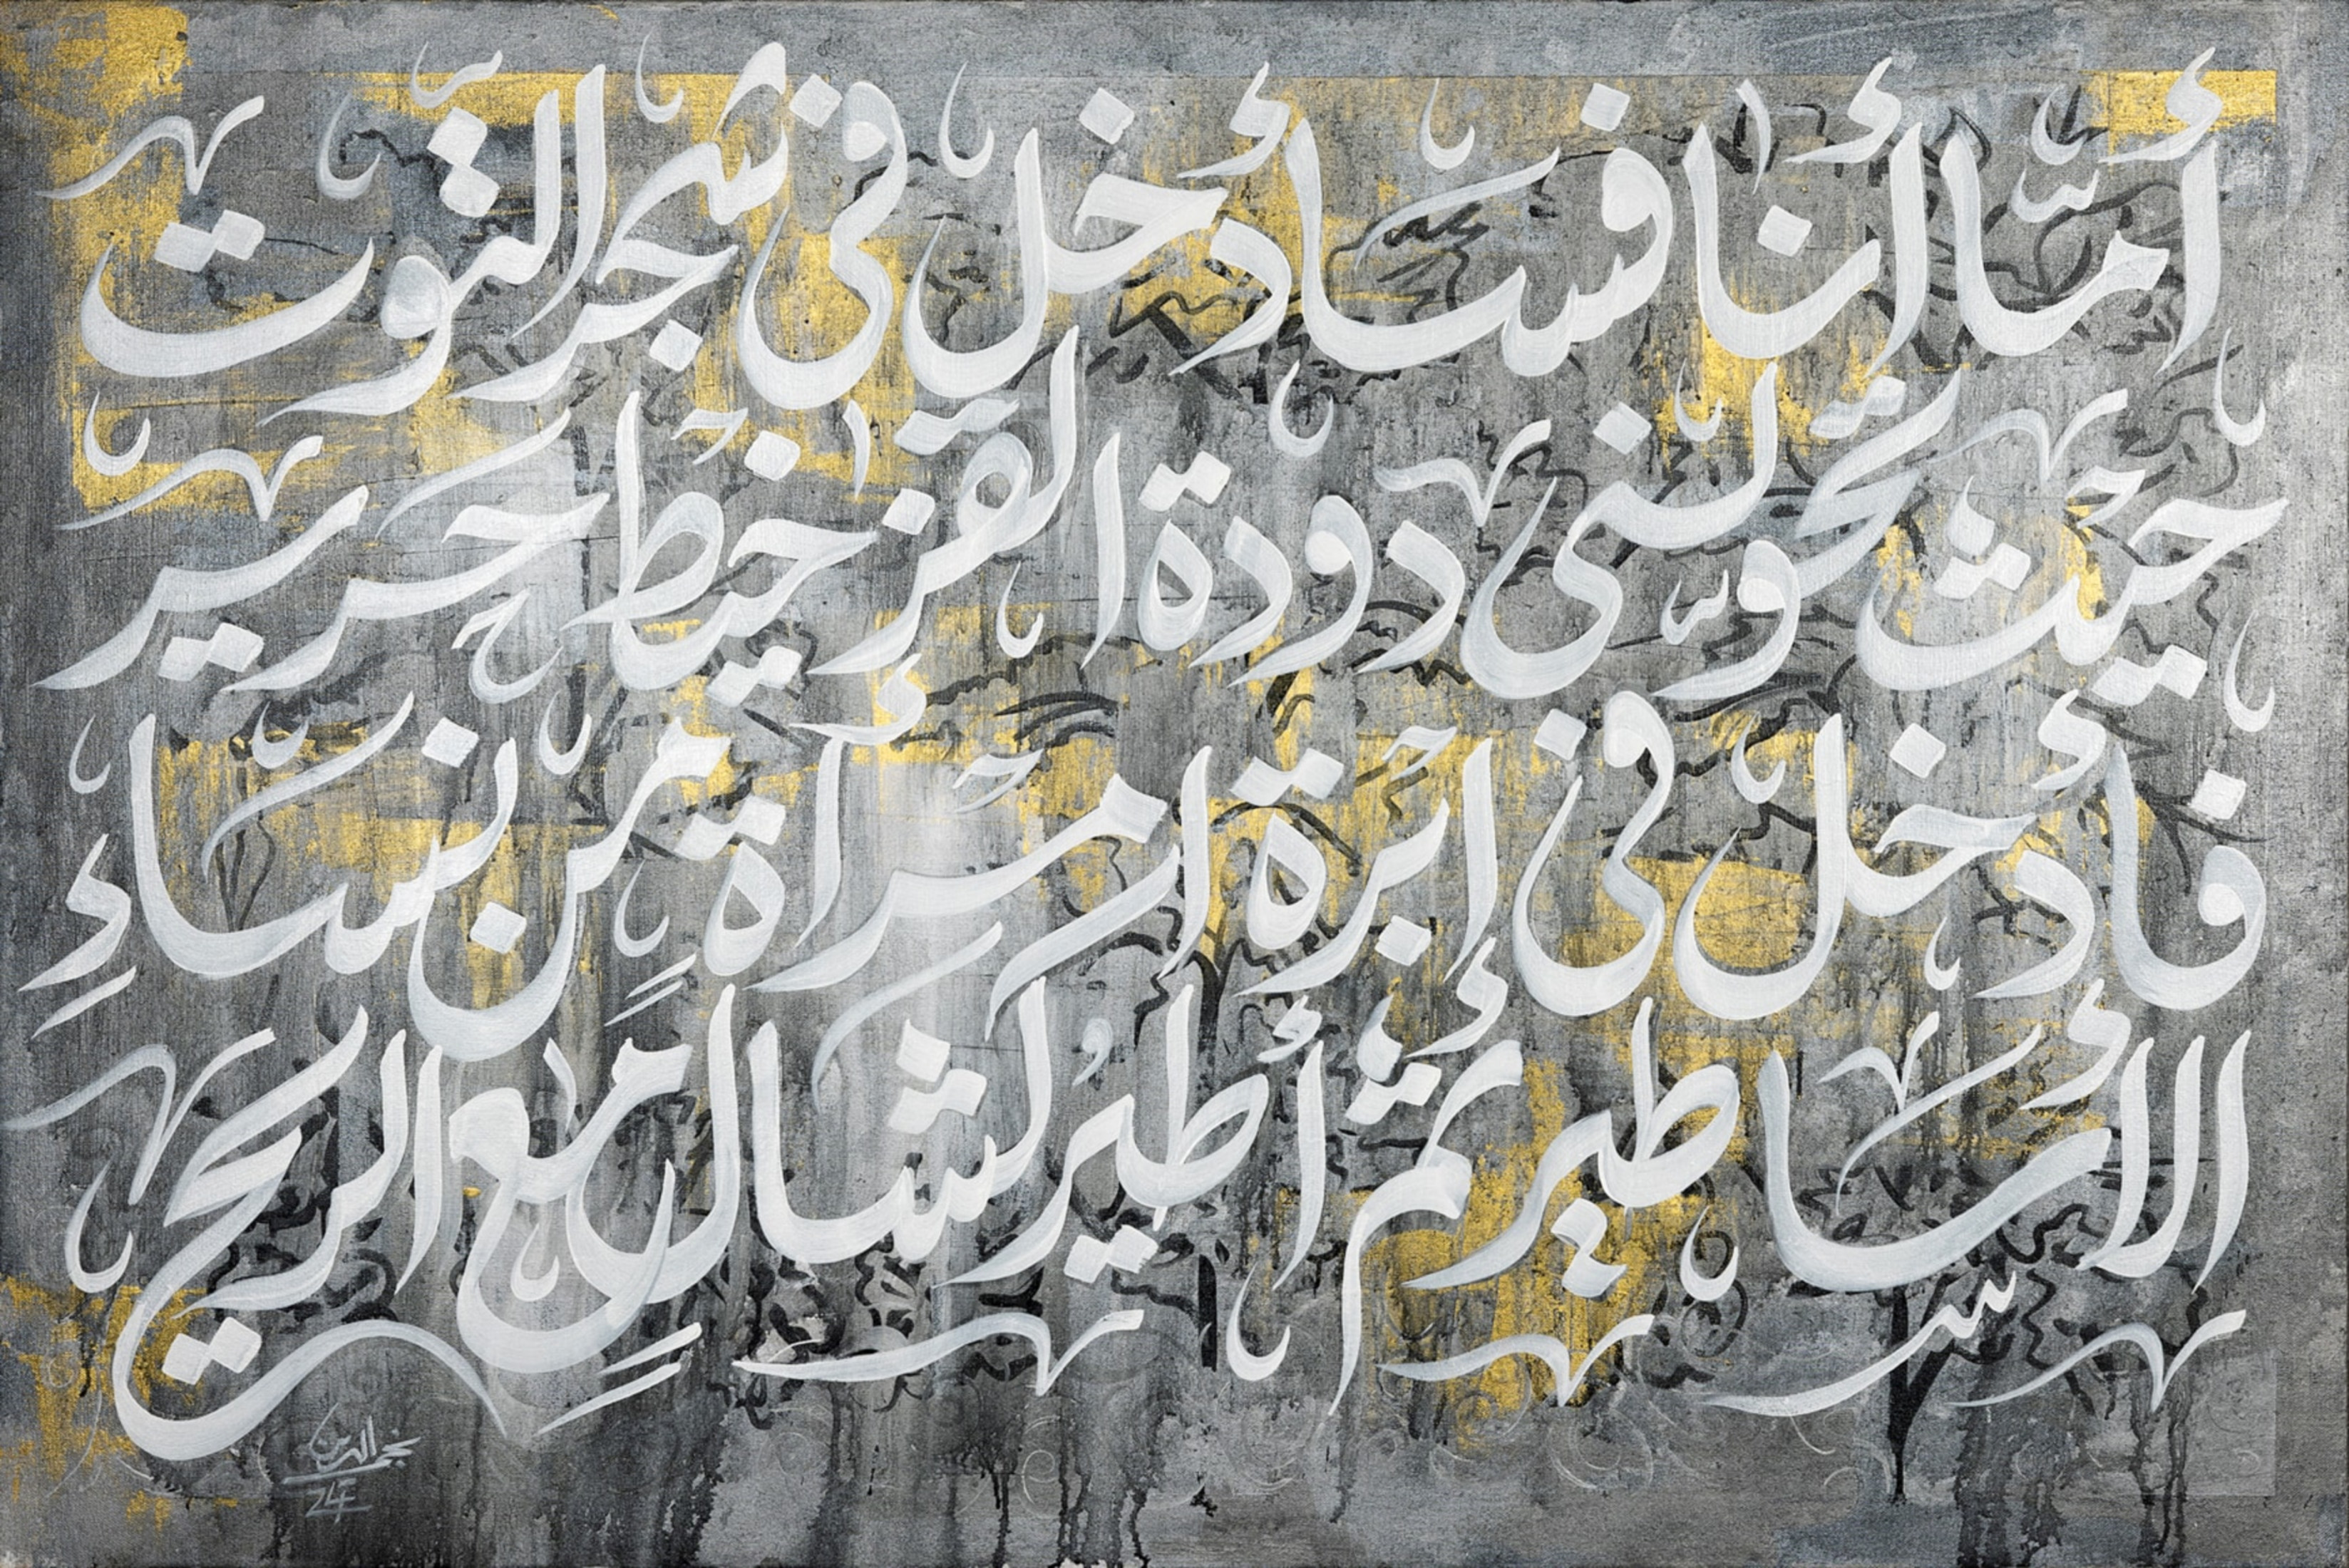 أمّا أنا فسأدخل في شجر التوت
حيث تحوّلني دودة القز خيط حرير
فأدخل في إبرة امرأة من نساء
الأساطير ثم أطير كشال مع الريح